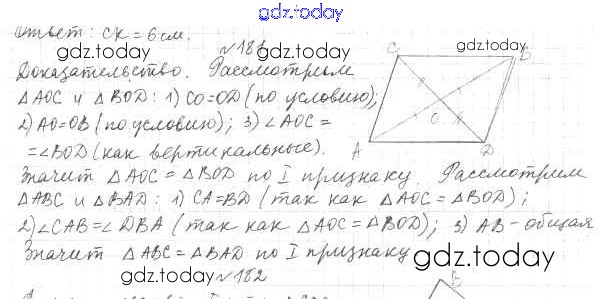 gdz.today
Ответ: СК = 6 см.
gdz.today
gdz.today
№ 181
Доказательство. Рассмотрим
C
B
△AOC и △BOD: 1) CO=OD (по условию);
2) AO=OB (по условию); 3) ∠AOC =
O
= ∠BOD (как вертикальные).
A
D
Значит △AOC = △BOD по I признаку. Рассмотрим
gdz.today
gdz.today
△ABC и △BAD: 1) CA=BD (так как △AOC = △BOD);
2) ∠CAB=∠DBA (так как △AOC = △BOD); 3) AB - общая
Значит △ABC = △BAD по I признаку
gdz.today
gdz.today
№ 182
B